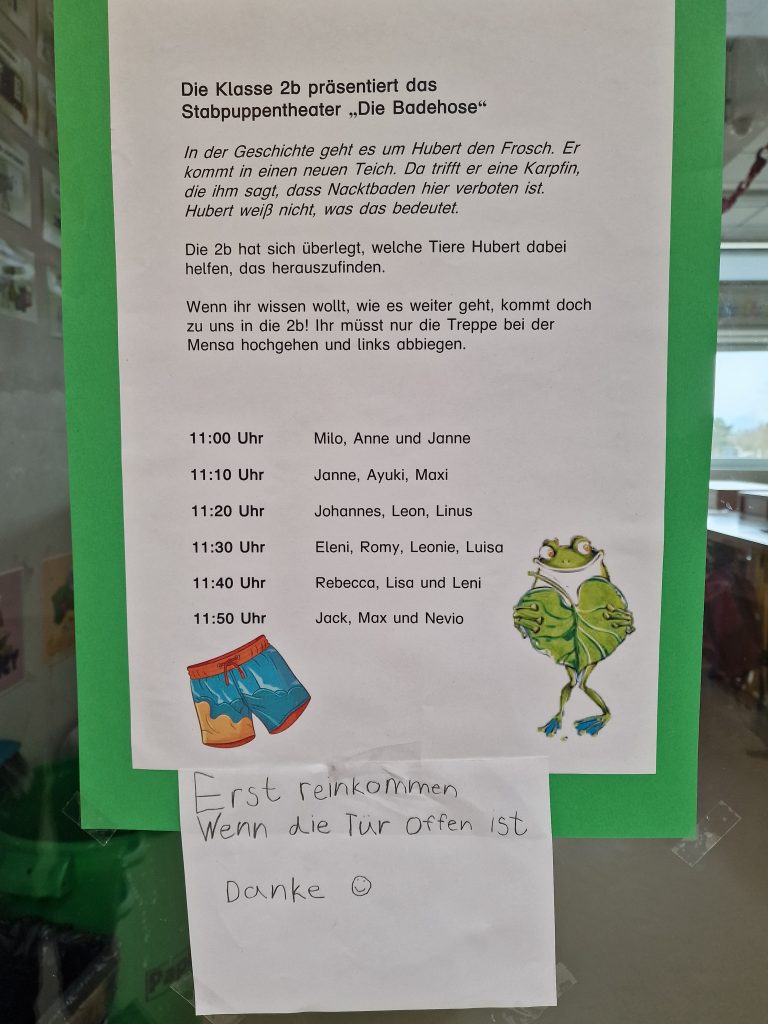 Die Klasse 2b präsentiert das
Stabpuppentheater „Die Badehose“
In der Geschichte geht es um Hubert den Frosch. Er
kommt in einen neuen Teich. Da trifft er eine Karpfin,
die ihm sagt, dass Nacktbaden hier verboten ist.
Hubert weiß nicht, was das bedeutet.
Die 2b hat sich überlegt, welche Tiere Hubert dabei
helfen, das herauszufinden.
Wenn ihr wissen wollt, wie es weiter geht, kommt doch
zu uns in die 2b! Ihr müsst nur die Treppe bei der
Mensa hochgehen und links abbiegen.
11:00 Uhr Milo, Anne und Janne
11:10 Uhr Janne, Ayuki, Maxi
11:20 Uhr Johannes, Leon, Linus
11:30 Uhr Eleni, Romy, Leonie, Luisa
11:40 Uhr Rebecca, Lisa und Leni
11:50 Uhr Jack, Max und Nevio
Erst reinkommen
Wenn die Tür offen ist
Danke ☺